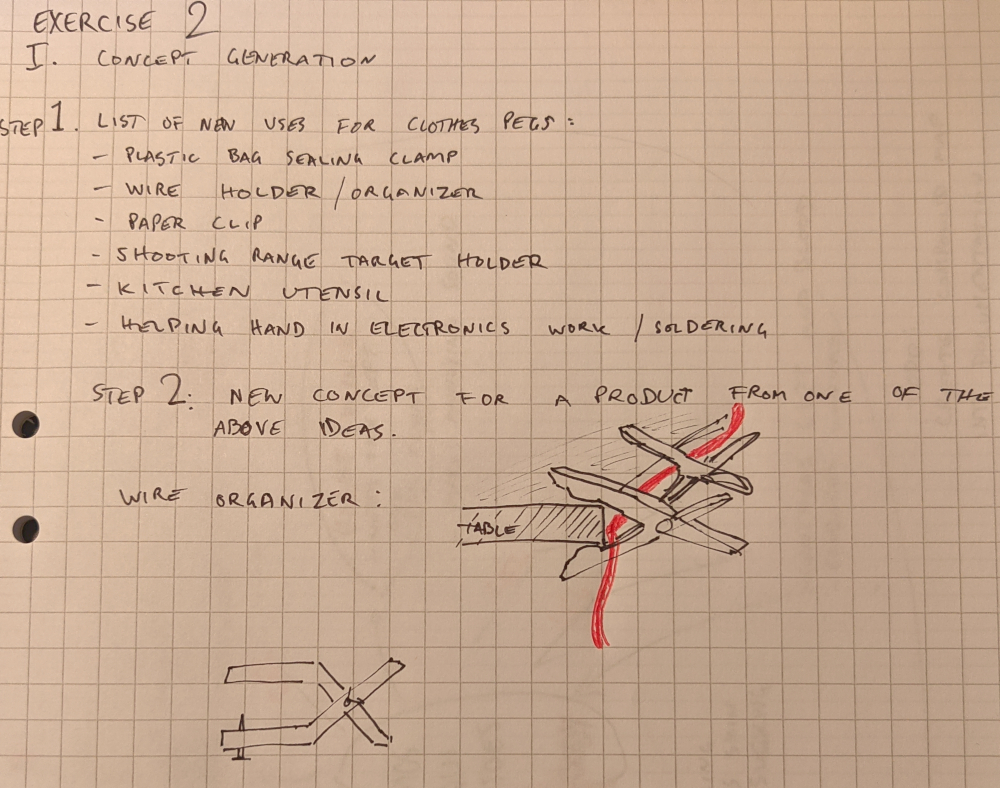 EXERCISE 2
I. CONCEPT GENERATION
STEP 1. LIST OF NEW USES FOR CLOTHES PEGS:
- PLASTIC BAG SEALING CLAMP
- WIRE HOLDER/ORGANIZER
- PAPER CLIP
- SHOOTING RANGE TARGET HOLDER
- KITCHEN UTENSIL
- HELPING HAND IN ELECTRONICS WORK / SOLDERING
STEP 2: NEW CONCEPT FOR A PRODUCT FROM ONE OF THE
ABOVE IDEAS.
WIRE ORGANIZER:
TABLE